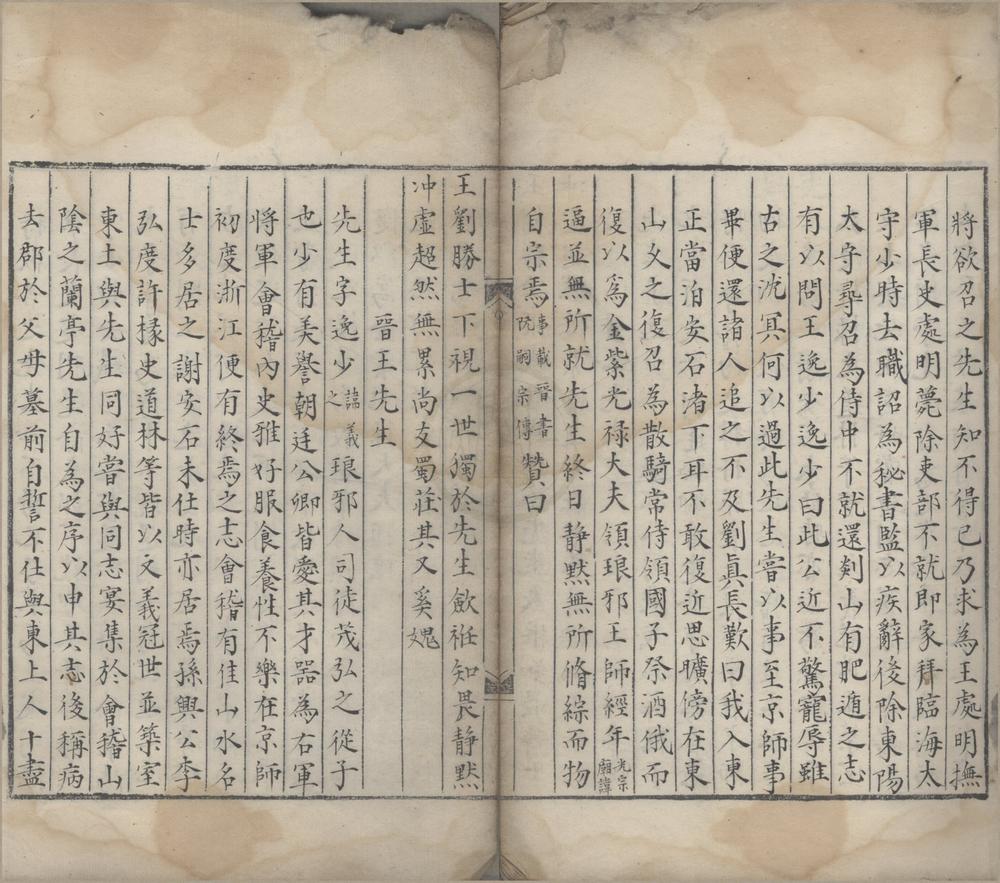 將欲召之先生知不得已乃求為王處明撫
軍長史處明薨除吏部不就即家拜臨海太
守少時去職詔為秘書監以疾辭後除東陽
太守尋召為侍中不就還剡山有肥遁之志
有以問王逸少逸少曰此公近不驚寵辱雖
古之沈冥何以過此先生嘗以事至京師事
畢便還諸人追之不及劉真長歎曰我入東
正當泊安石渚下耳不敢復近思曠傍在東
山乆之復召為散騎常侍領國子祭酒俄而
復以為金紫光禄大夫領琅邪王師經年光宗廟諱
逼並無所就先生終日静默無所脩綜而物
自宗焉事載晉書阮嗣宗傳贊曰
王劉勝士下視一世獨於先生斂衽知畏静默
冲虚超然無累尚友蜀莊其又奚媿
晉王先生
先生字逸少諱羲之琅邪人司徒茂弘之從子
也少有美譽朝廷公卿皆愛其才器為右軍
將軍會稽內史雅好服食養性不樂在京師
初度浙江便有終焉之志會稽有佳山水名
士多居之謝安石未仕時亦居焉孫興公李
弘度許掾史道林等皆以文義冠世並築室
東土與先生同好嘗與同志宴集於會稽山
陰之蘭亭先生自為之序以申其志後稱病
去郡於父母墓前自誓不仕與東上人十盡